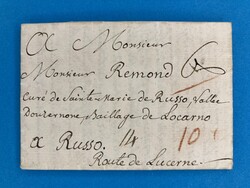 A Monsieur
Monsieur Remond
Curé de Sainte Marie de Russo, Vallée
Donzernone Bailliage de Locarno
a Russo. 14 10
Route de Lucerne.